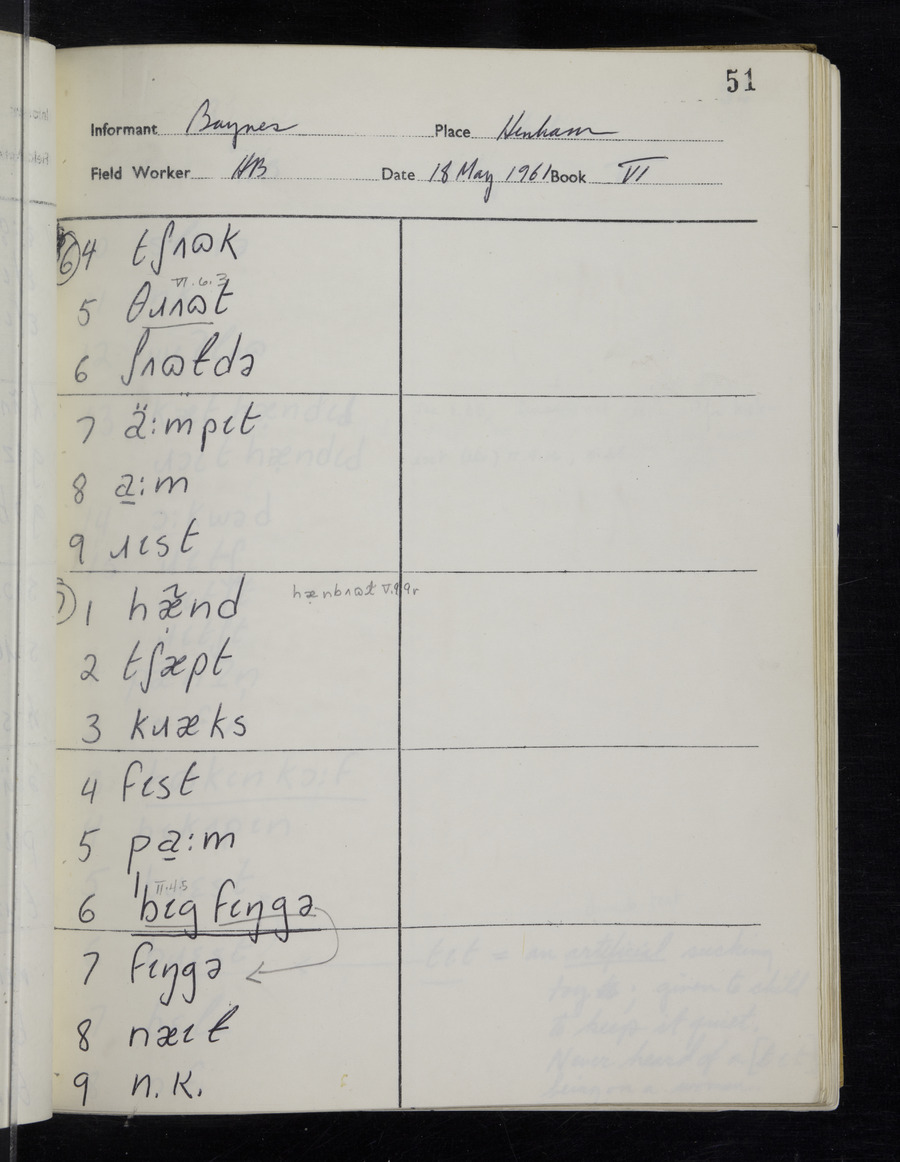 51
Informant Baynes Place Henham
Field Worker HB Date 18 May 1961 Book VI
6 4 tʃʌɷk
VI.6.3
5 θɹʌɷt
6 ʃʌɷɫdə
7 ä:mpɪt
8 a̱:m
9 ɹɪst
7 1 hæ̃nd hænbʌɷɫ V.9.9r
2 tʃæpt
3 kɹæks
4 fɪst
5 pa̱:m
II.4.5
6 ˈbɪg fɪŋgə
7 fɪŋgə
8 næɪɫ
9 n.k.